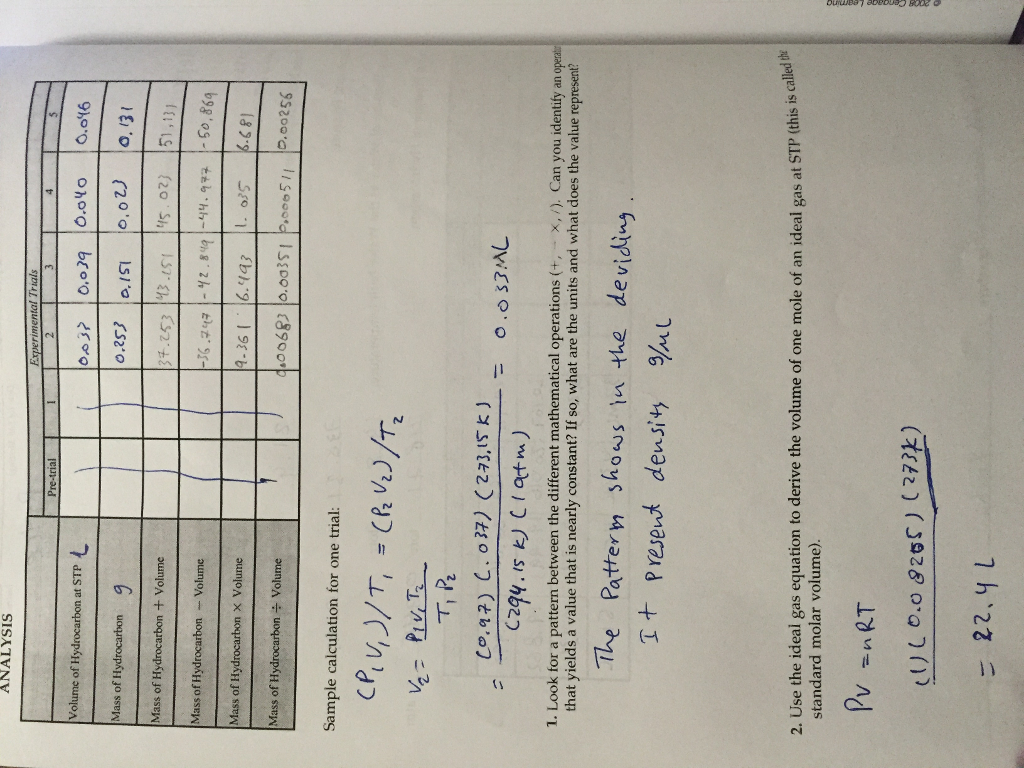 © 2008 Cengage Learning
ANALYSIS
Experimental Trials
Pre-trial 1 2 3 4 5
Volume of Hydrocarbon at STP L 0.037 0.039 0.040 0.046
Mass of Hydrocarbon g 0.253 0.151 0.023 0.131
Mass of Hydrocarbon + Volume 37.253 43.151 45.023 51.131
Mass of Hydrocarbon − Volume -36.747 -42.849 -44.977 -50.869
Mass of Hydrocarbon × Volume 9.361 6.493 1.035 6.681
Mass of Hydrocarbon ÷ Volume 0.00683 0.00351 0.000511 0.00256
Sample calculation for one trial:
(P1V1)/T1 = (P2V2)/T2
V2 = P1V1T2
T1P2
= (0.97)(.037)(273.15K)
(294.15K)(1atm) = 0.033
1. Look for a pattern between the different mathematical operations (+, − ×, /). Can you identify an
that yields a value that is nearly constant? If so, what are the units and what does the value represent?
The Pattern shows in the deviding.
It Present density g/mL
2. Use the ideal gas equation to derive the volume of one mole of an ideal gas at STP (this is called the
standard molar volume).
PV = nRT
(1)(0.08205)(273K)
= 22.4 L